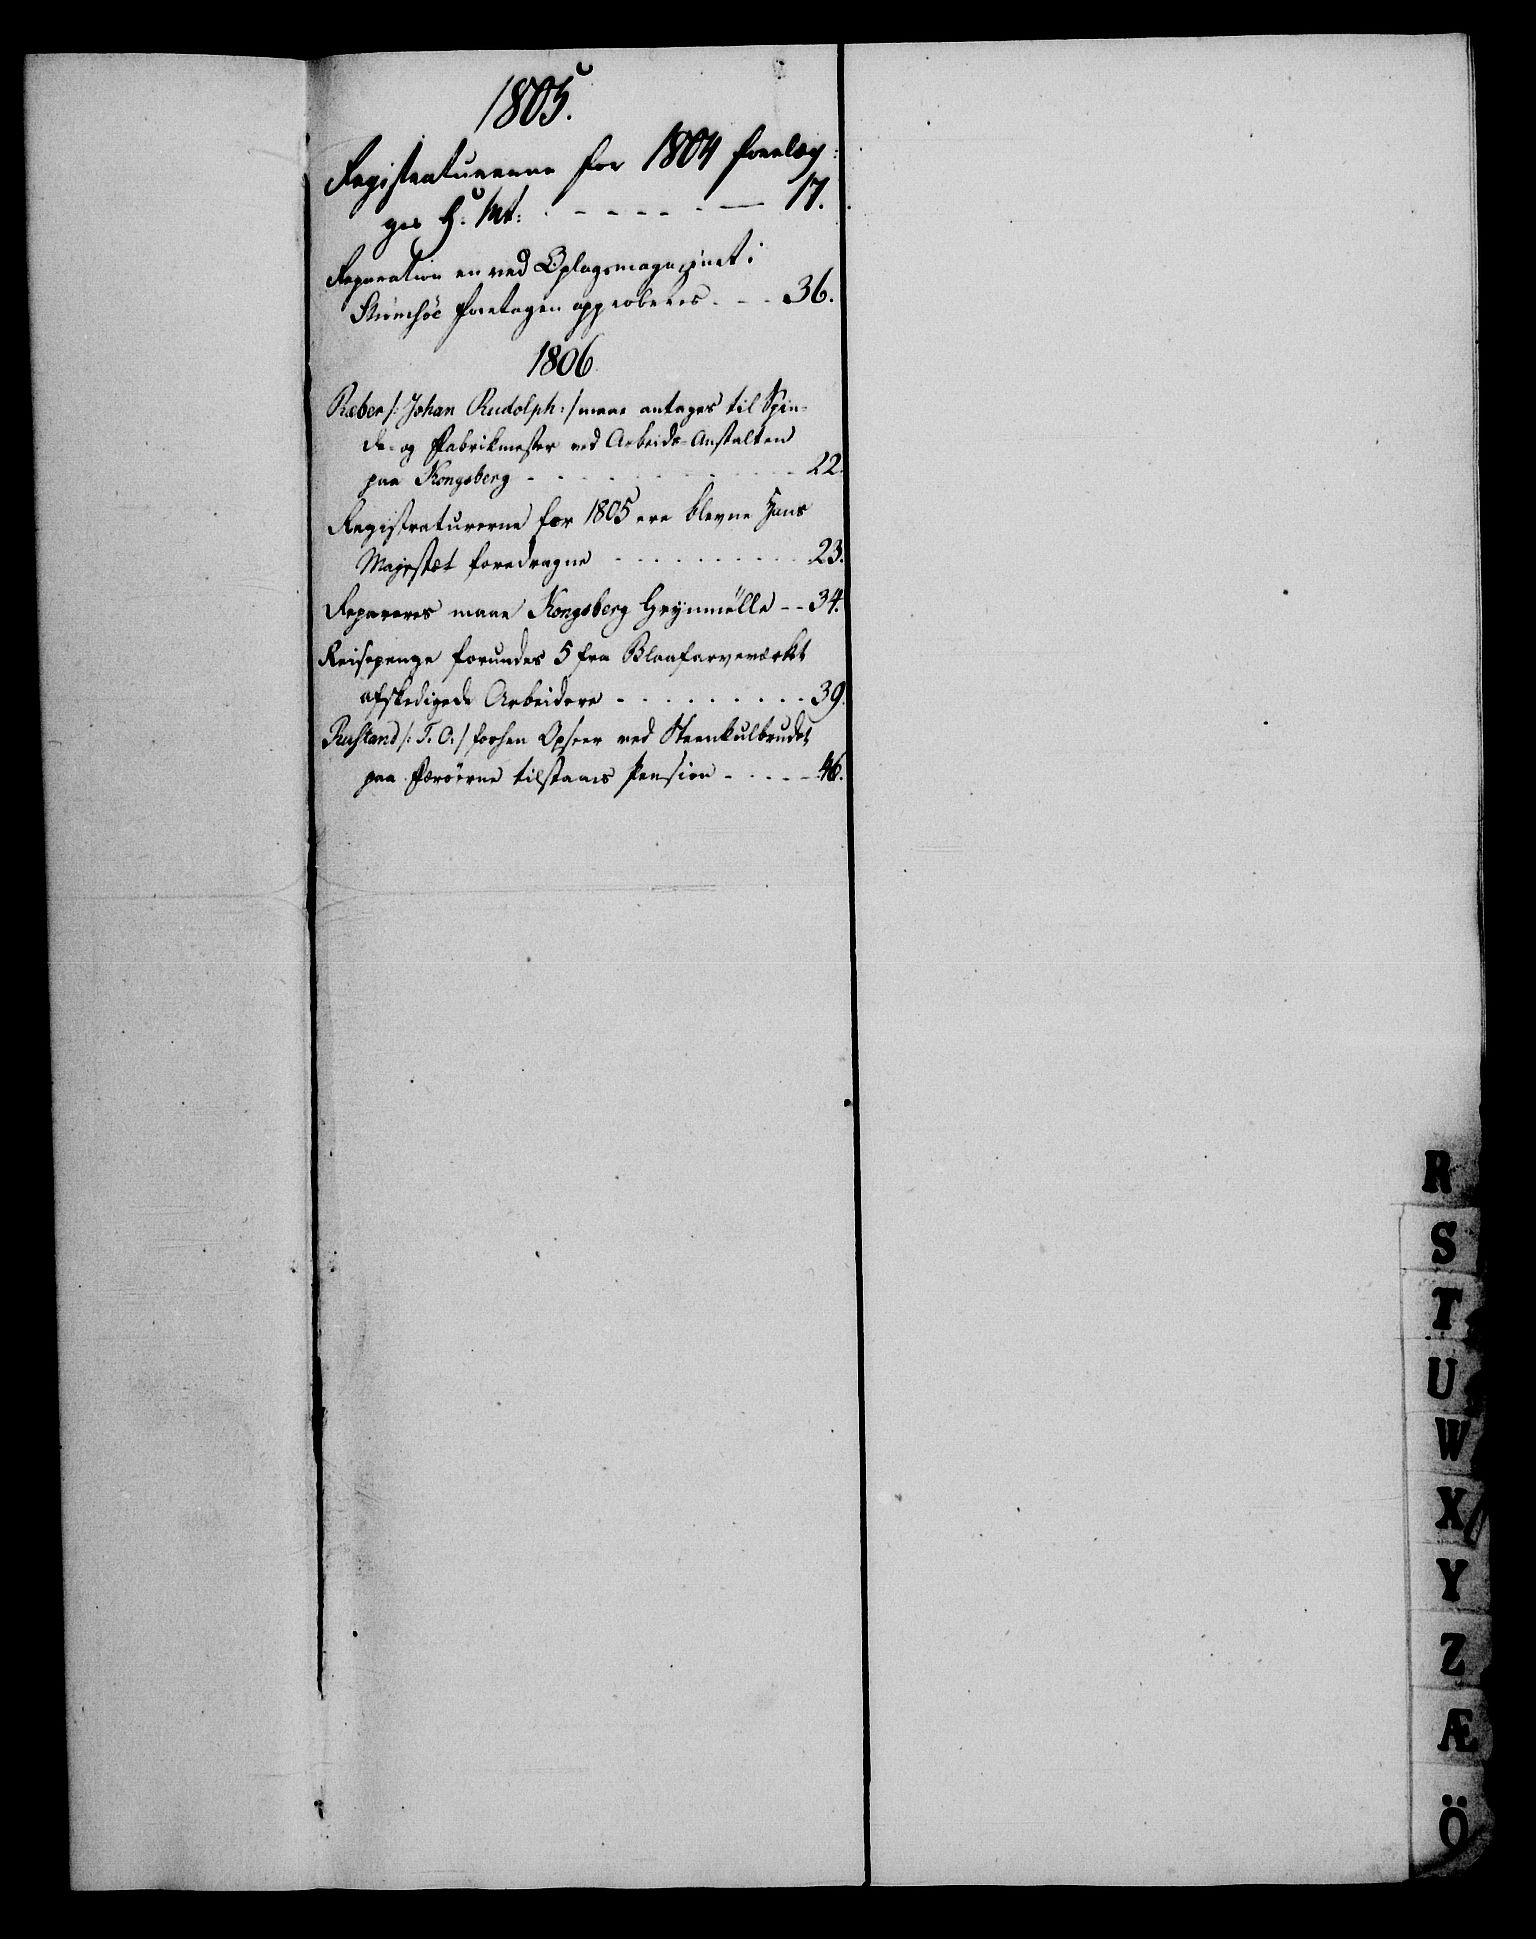 1805.
Registraturerne for 1804 forelæg-
ges H: Mt: . - - - - - - 17.
Reparation en ved Oplagsmagazinet i
foretagen approberes. - - - 36.
1806.
Ræber /: Johan Rudolph :/ maae antages til Spin-
de- og Fabrikmester ved Arbeids-Anstalten
paa Kongsberg - - - - - - - 22.
Registraturerne for 1805 ere blevne Hans
Majestæt foredragne - - - - - - - 23.
Repareres maae Kongsberg Grynmølle - - 34.
Reisepenge forundes 5 fra Blaafarveværket
afskedigede Arbeidere - - - - - - - 39.
Rustand /: T. O :/ forhen Opseer ved Steenkulbrudet
paa Færöerne tilstaaes Pension - - - - - 46.
R
S
T
U
W
X
Y
Z
Æ
Ö